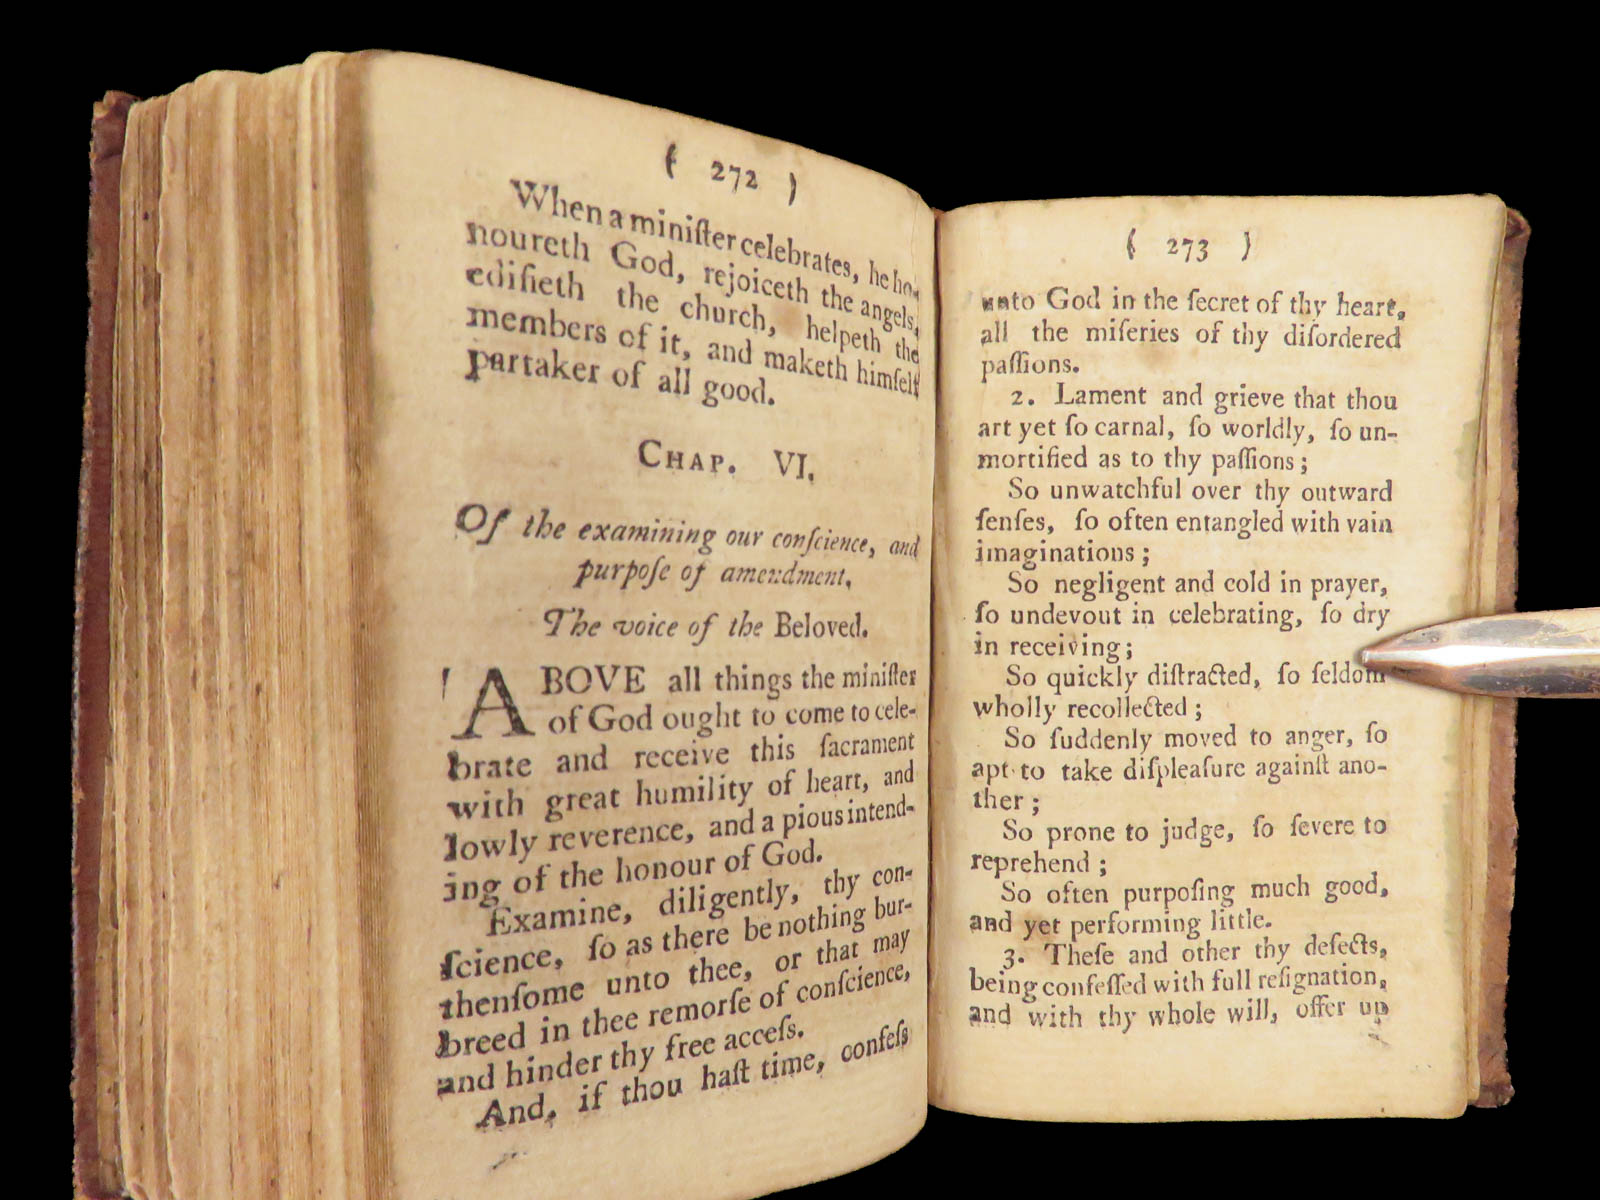 ( 272 )
When a miniſter celebrates, he ho-
noureth God, rejoiceth the angels,
edifieth the church, helpeth the
members of it, and maketh himſelf
partaker of all good.
CHAP. VI.
Of the examining our conſcience, and
purpoſe of amendment.
The voice of the Beloved.
ABOVE all things the miniſter
of God ought to come to cele-
brate and receive this ſacrament
with great humility of heart, and
lowly reverence, and a pious intend-
ing of the honour of God.
Examine, diligently, thy con-
ſcience, ſo as there be nothing bur-
thenſome unto thee, or that may
breed in thee remorſe of conſcience,
and hinder thy free acceſs.
And, if thou haſt time, confeſs
( 273 )
unto God in the ſecret of thy heart,
all the miſeries of thy diſordered
paſſions.
2. Lament and grieve that thou
art yet ſo carnal, ſo worldly, ſo un-
mortified as to thy paſſions;
So unwatchful over thy outward
ſenſes, ſo often entangled with vain
imaginations;
So negligent and cold in prayer,
ſo undevout in celebrating, ſo dry
in receiving;
So quickly diſtracted, ſo ſeldom
wholly recollected;
So ſuddenly moved to anger, ſo
apt to take diſpleaſure againſt ano-
ther;
So prone to judge, ſo ſevere to
reprehend;
So often purpoſing much good,
and yet performing little.
3. Theſe and other thy defects,
being confeſſed with full reſignation,
and with thy whole will, offer up